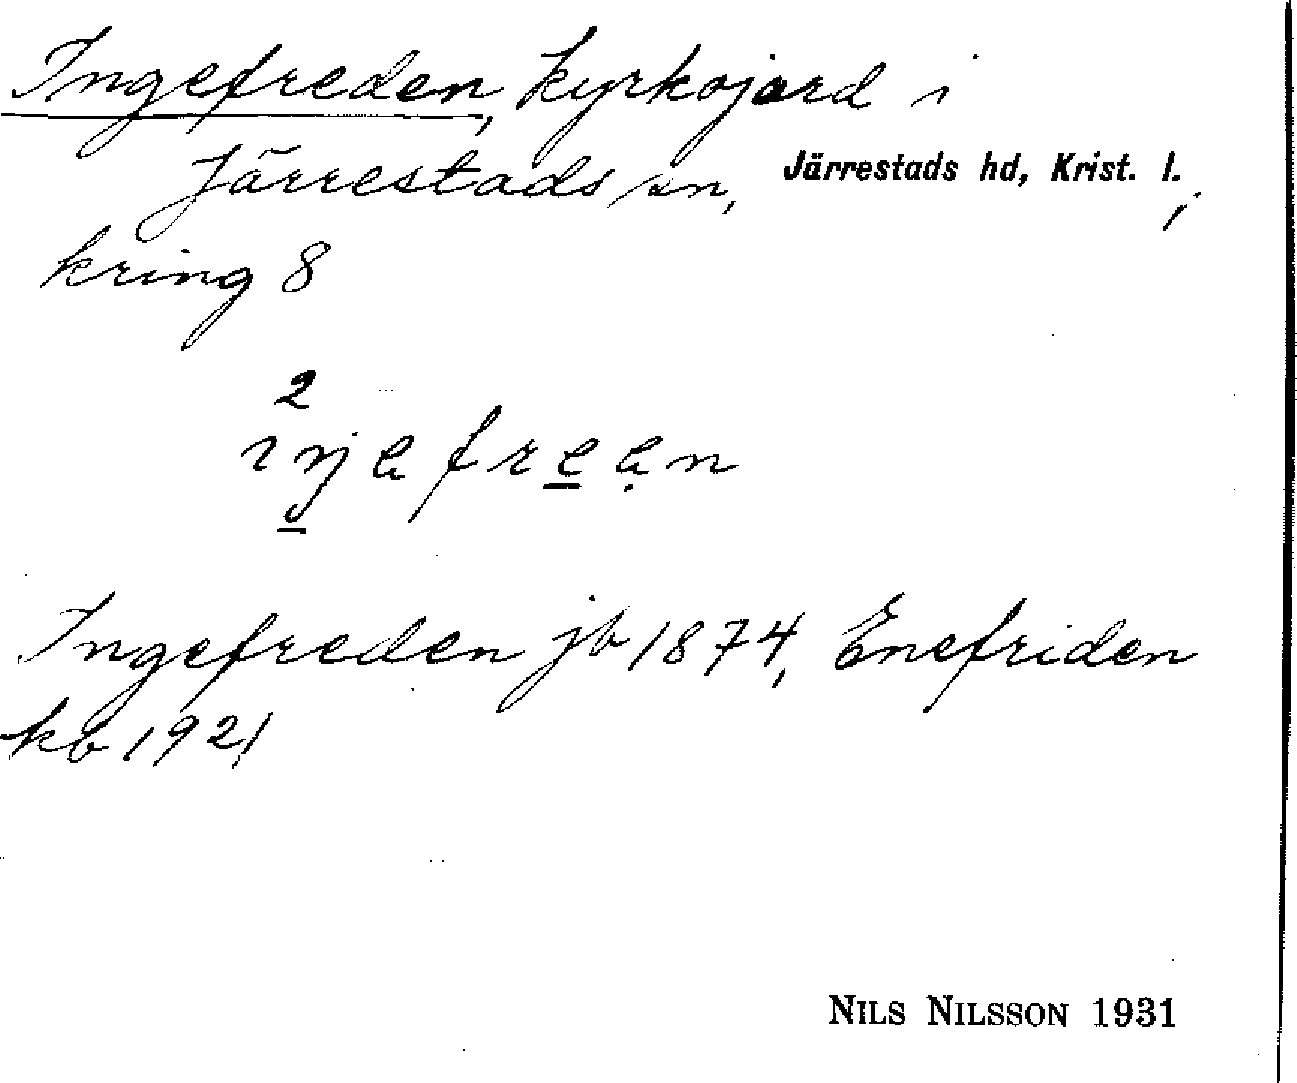 Ingefreden, kyrkojord i
Järrestads sn, Järrestads hd, Krist. l.;
kring 8
2
Ingefreden jb 1874, Enefriden
kb 1921
NILS NILSSON 1931